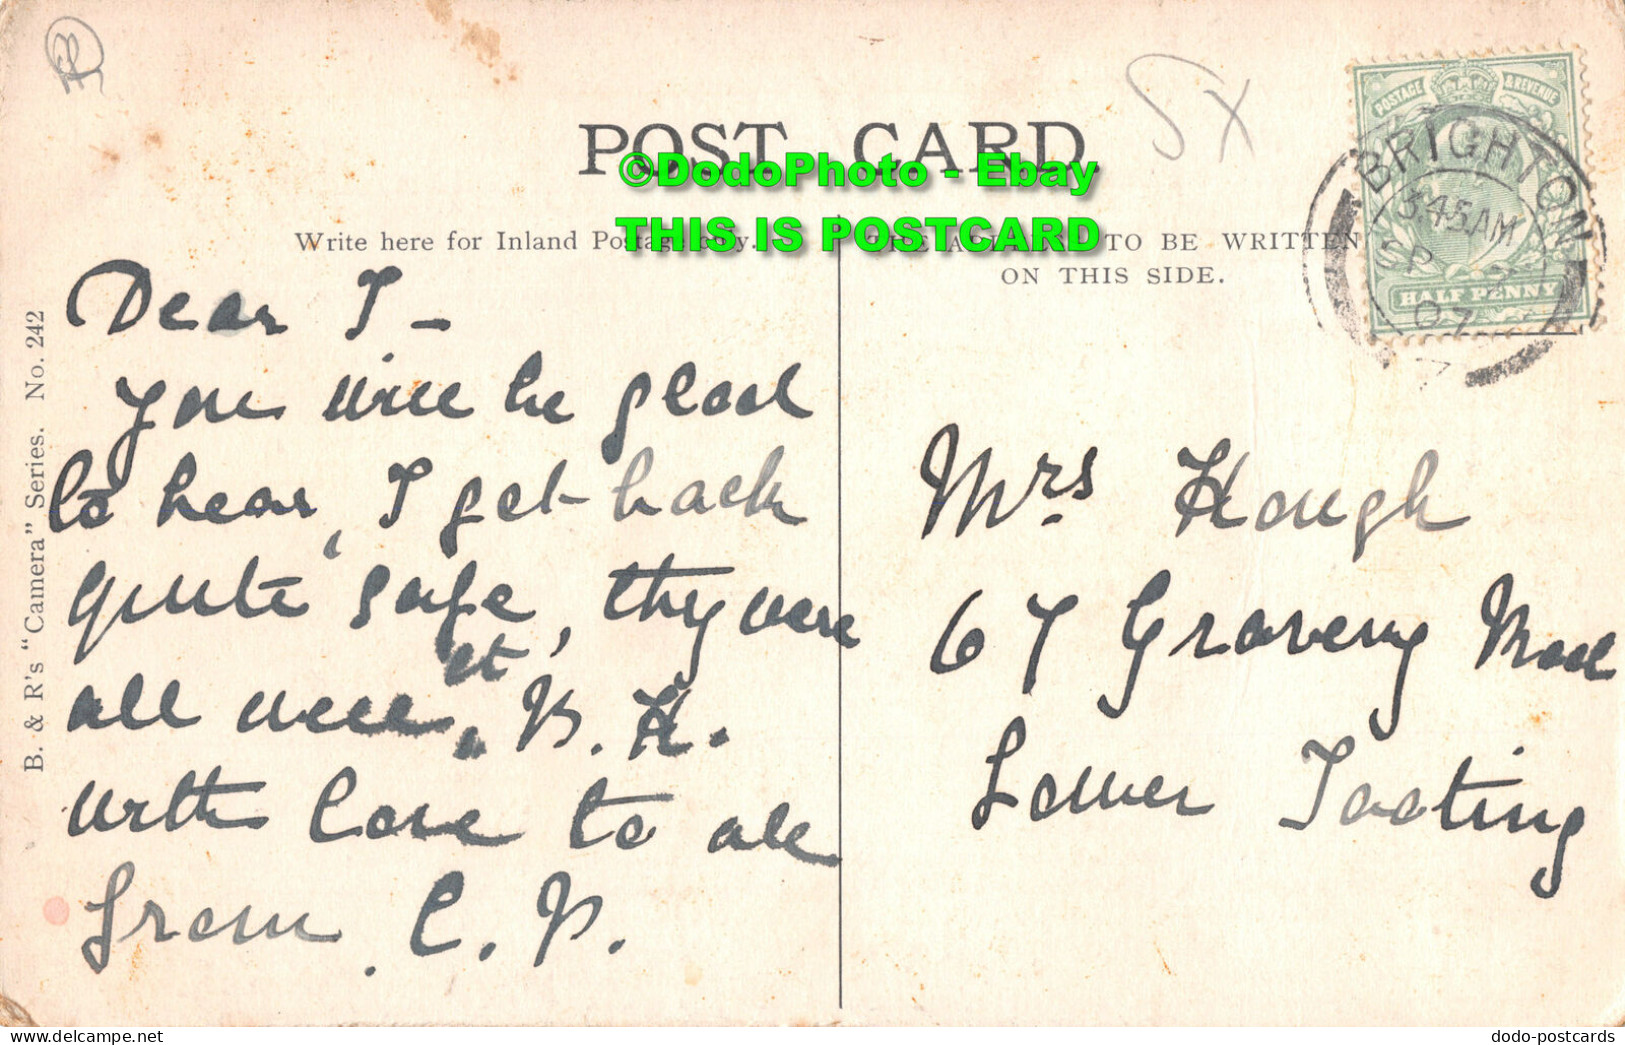 POST CARD
©DodoPhoto - Ebay
THIS IS POSTCARD
Write here for Inland Postage only.
TO BE WRITTEN
ON THIS SIDE.
B. & R's "Camera" Series. No. 242
POSTAGE & REVENUE
HALF PENNY
BRIGHTON
3.45AM
SP
07
5X
Dear T-
you will be glad
to hear, I get back
quite safe, they were
all well, at B. H.
with love to all
from C. B.
Mrs Hough
67 Graveny Road
Lower Tooting
dodo-postcards